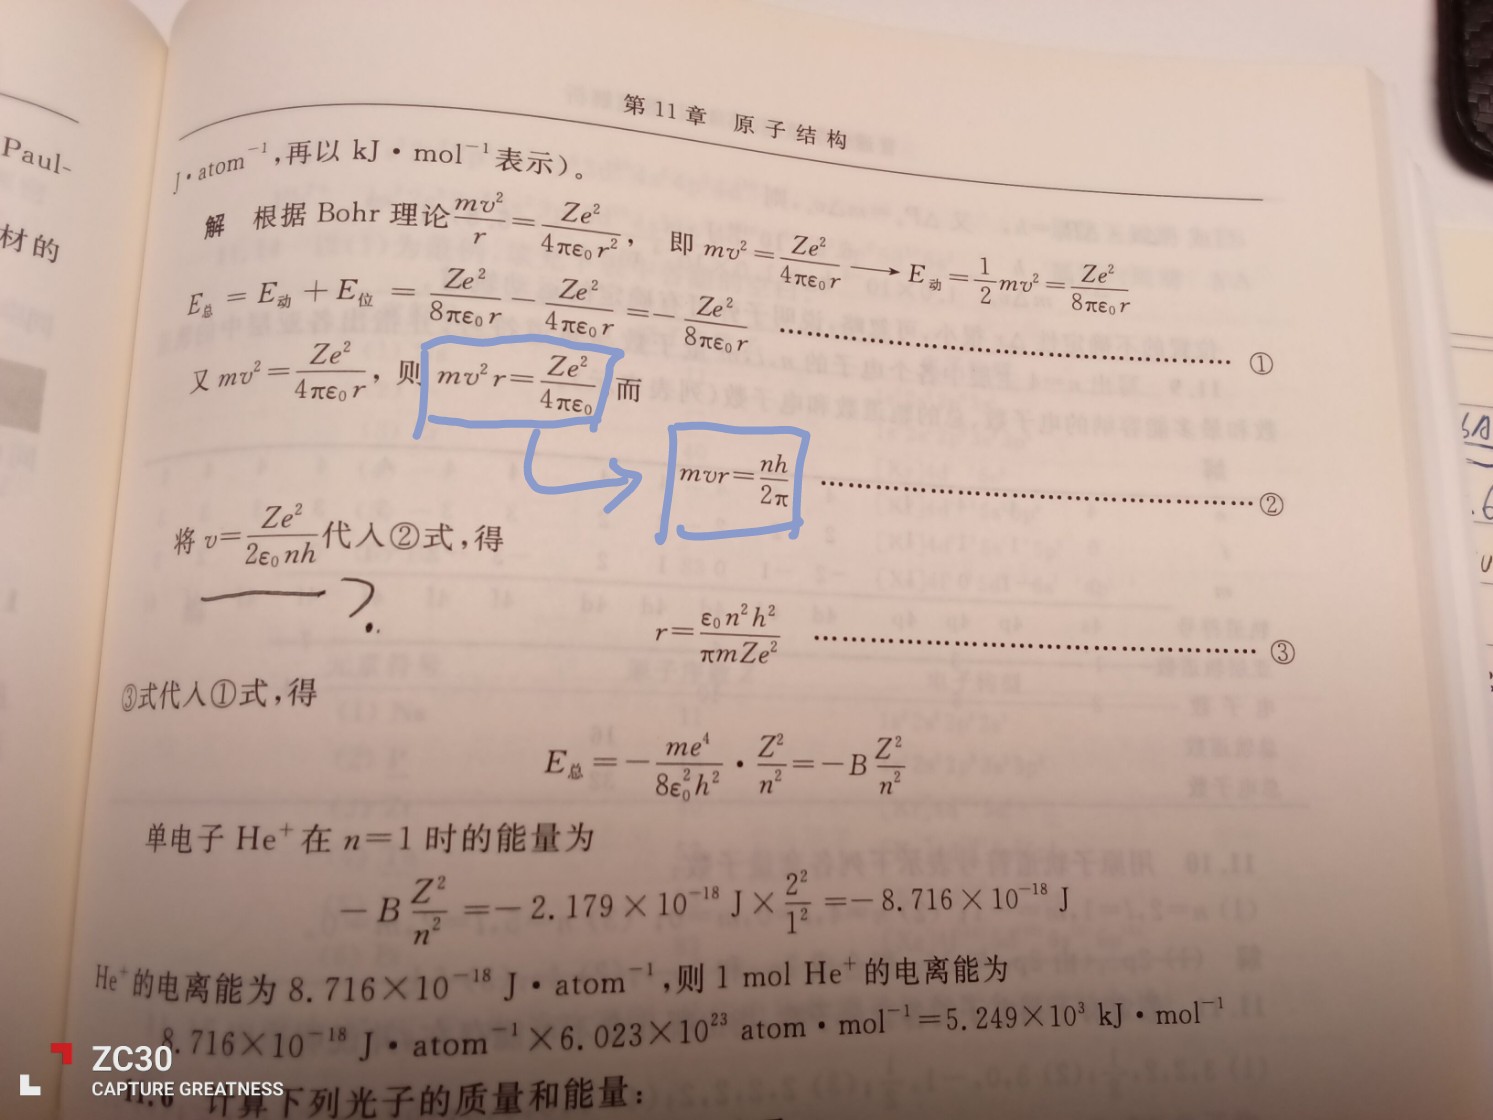 Paul-
材的
第 11 章 原 子 结 构
J·atom⁻¹,再以 kJ·mol⁻¹ 表示)。
解 根据 Bohr 理论 mv²/r = Ze²/4πε₀r², 即 mv² = Ze²/4πε₀r ⟶ E动 = 1/2 mv² = Ze²/8πε₀r
E总 = E动 + E位 = Ze²/8πε₀r − Ze²/4πε₀r = − Ze²/8πε₀r ……………… ①
又 mv² = Ze²/4πε₀r, 则 mv²r = Ze²/4πε₀ 而
mvr = nh/2π ……………… ②
将 v = Ze²/2ε₀nh 代入②式,得
?
r = ε₀n²h²/πmZe² ……………… ③
③式代入①式,得
E总 = − me⁴/8ε₀²h² · Z²/n² = −B Z²/n²
单电子 He⁺ 在 n=1 时的能量为
−B Z²/n² = −2.179×10⁻¹⁸ J × 2²/1² = −8.716×10⁻¹⁸ J
He⁺的电离能为 8.716×10⁻¹⁸ J·atom⁻¹,则 1 mol He⁺的电离能为
8.716×10⁻¹⁸ J·atom⁻¹×6.023×10²³ atom·mol⁻¹=5.249×10³ kJ·mol⁻¹
11.6 计算下列光子的质量和能量:
ZC30
CAPTURE GREATNESS